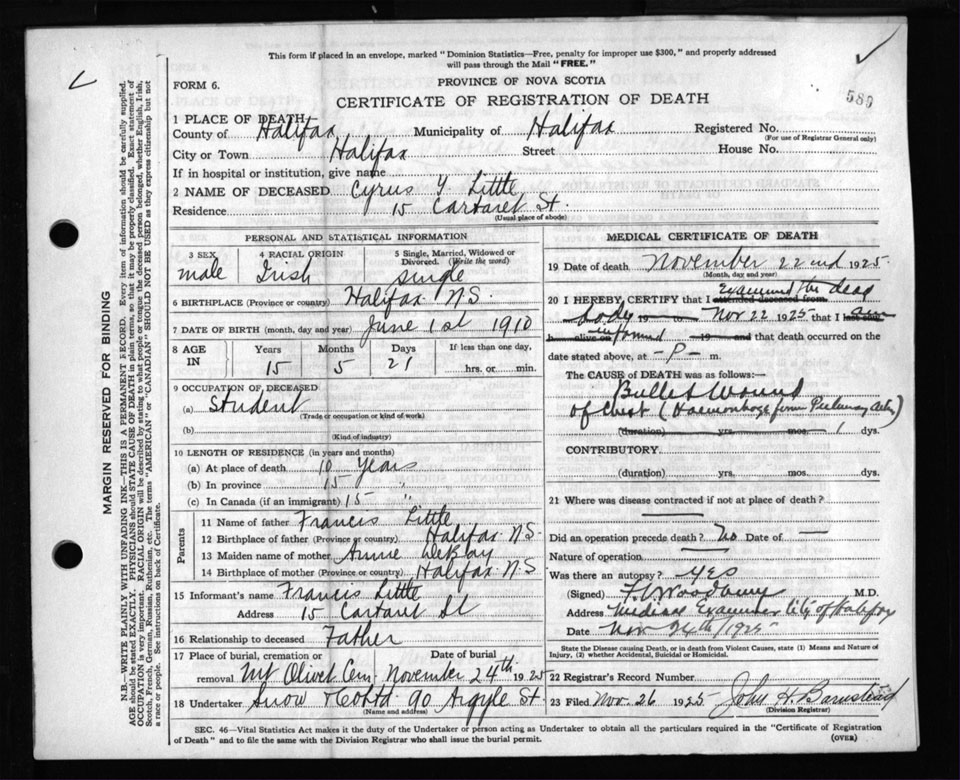 This form if placed in an envelope, marked "Dominion Statistics—Free, penalty for improper use $300," and properly addressed
will pass through the Mail "FREE."
FORM 6.
PROVINCE OF NOVA SCOTIA
CERTIFICATE OF REGISTRATION OF DEATH
580
1 PLACE OF DEATH
County of Halifax Municipality of Halifax Registered No.
(For use of Registrar General only)
City or Town Halifax Street House No.
If in hospital or institution, give name
2 NAME OF DECEASED Cyrus Y. Little
Residence 15 Cartaret St.
(Usual place of abode)
PERSONAL AND STATISTICAL INFORMATION
3 SEX 4 RACIAL ORIGIN 5 Single, Married, Widowed or
Divorced. (Write the word)
male Irish single
6 BIRTHPLACE (Province or country) Halifax N.S.
7 DATE OF BIRTH (month, day and year) June 1st 1910
8 AGE IN Years Months Days If less than one day.
15 5 21 hrs. or min.
9 OCCUPATION OF DECEASED
(a) Student
(Trade or occupation or kind of work)
(b)
(Kind of industry)
10 LENGTH OF RESIDENCE (in years and months)
(a) At place of death 10 years
(b) In province 15 "
(c) In Canada (if an immigrant) 15 "
Parents
11 Name of father Francis Little
12 Birthplace of father (Province or country) Halifax N.S.
13 Maiden name of mother Annie DeBay
14 Birthplace of mother (Province or country) Halifax N.S
15 Informant's name Francis Little
Address 15 Cartaret St
16 Relationship to deceased Father
17 Place of burial, cremation or Date of burial
removal Mt Olivet Cem November 24th 1925
18 Undertaker Snow & Co Ltd 90 Argyle St.
(Name and address)
MEDICAL CERTIFICATE OF DEATH
19 Date of death November 22nd 1925
(Month, day and year)
20 I HEREBY CERTIFY that I attended deceased from Examined the dead
body 19 to Nov 22 1925 that I last saw
h alive on informed 19 and that death occurred on the
date stated above, at -P- m.
The CAUSE of DEATH was as follows:—
Bullet Wound
of Chest (Haemorrhage from Pulmonary Artery)
(duration) yrs. mos. 1 dys.
CONTRIBUTORY
(duration) yrs. mos. dys.
21 Where was disease contracted if not at place of death?
Did an operation precede death? No Date of —
Nature of operation
Was there an autopsy? Yes
(Signed) F. V. Woodbury M.D.
Address Medical Examiner City of Halifax
Date Nov 24th/1925
State the Disease causing Death, or in death from Violent Causes, state (1) Means and Nature of
Injury, (2) whether Accidental, Suicidal or Homicidal.
22 Registrar's Record Number
23 Filed Nov. 26 1925 John H. Barnstead
(Division Registrar)
SEC. 46—Vital Statistics Act makes it the duty of the Undertaker or person acting as Undertaker to obtain all the particulars required in the "Certificate of Registration
of Death" and to file the same with the Division Registrar who shall issue the burial permit.
(OVER)
MARGIN RESERVED FOR BINDING
N.B.—WRITE PLAINLY WITH UNFADING INK—THIS IS A PERMANENT RECORD. Every item of information should be carefully supplied.
AGE should be stated EXACTLY. PHYSICIANS should STATE CAUSE OF DEATH in plain terms, so that it may be properly classified. Exact statement of
OCCUPATION is very important. RACIAL ORIGIN will be described by stating to what people or tongue the deceased person belonged, whether English, Irish,
Scotch, French, German, Russian, Ruthenian, etc. The terms "AMERICAN" or "CANADIAN" SHOULD NOT BE USED as they express citizenship but not
a race or people. See instructions on back of Certificate.